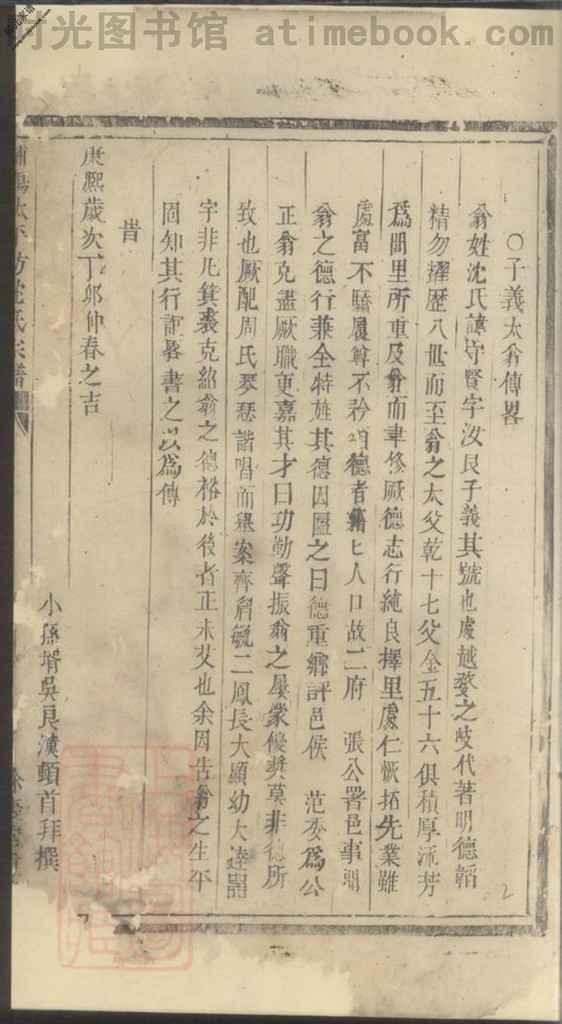 时光图书馆 atimebook.com
○子義太翁傳畧
翁姓沈氏諱守賢字汝良子義其號也處越婺之歧代著明德韜
精勿擢歷八世而至翁之太父乾十七父金五十六俱積厚流芳
爲閭里所重及翁而聿修厥德志行純良擇里處仁恢拓先業雖
處富不驕履尊不矜 德者藉七人口故二府 張公署邑事
翁之德行兼全特旌其德因匾之曰德重鄉評邑侯 范委爲公
正翁克盡厥職更嘉其才曰功勤聲振翁之屢蒙優奬莫非德所
致也厥配周氏琴瑟諧唱而舉案齊眉毓二鳳長大顯幼大逵噐
宇非凡箕裘克紹翁之德裕於後者正未艾也余因告翁之生平
固知其行誼畧書之以爲傳
旹
康熙歲次丁卯仲春之吉
小孫壻吳良 頓首拜撰
沈氏宗譜